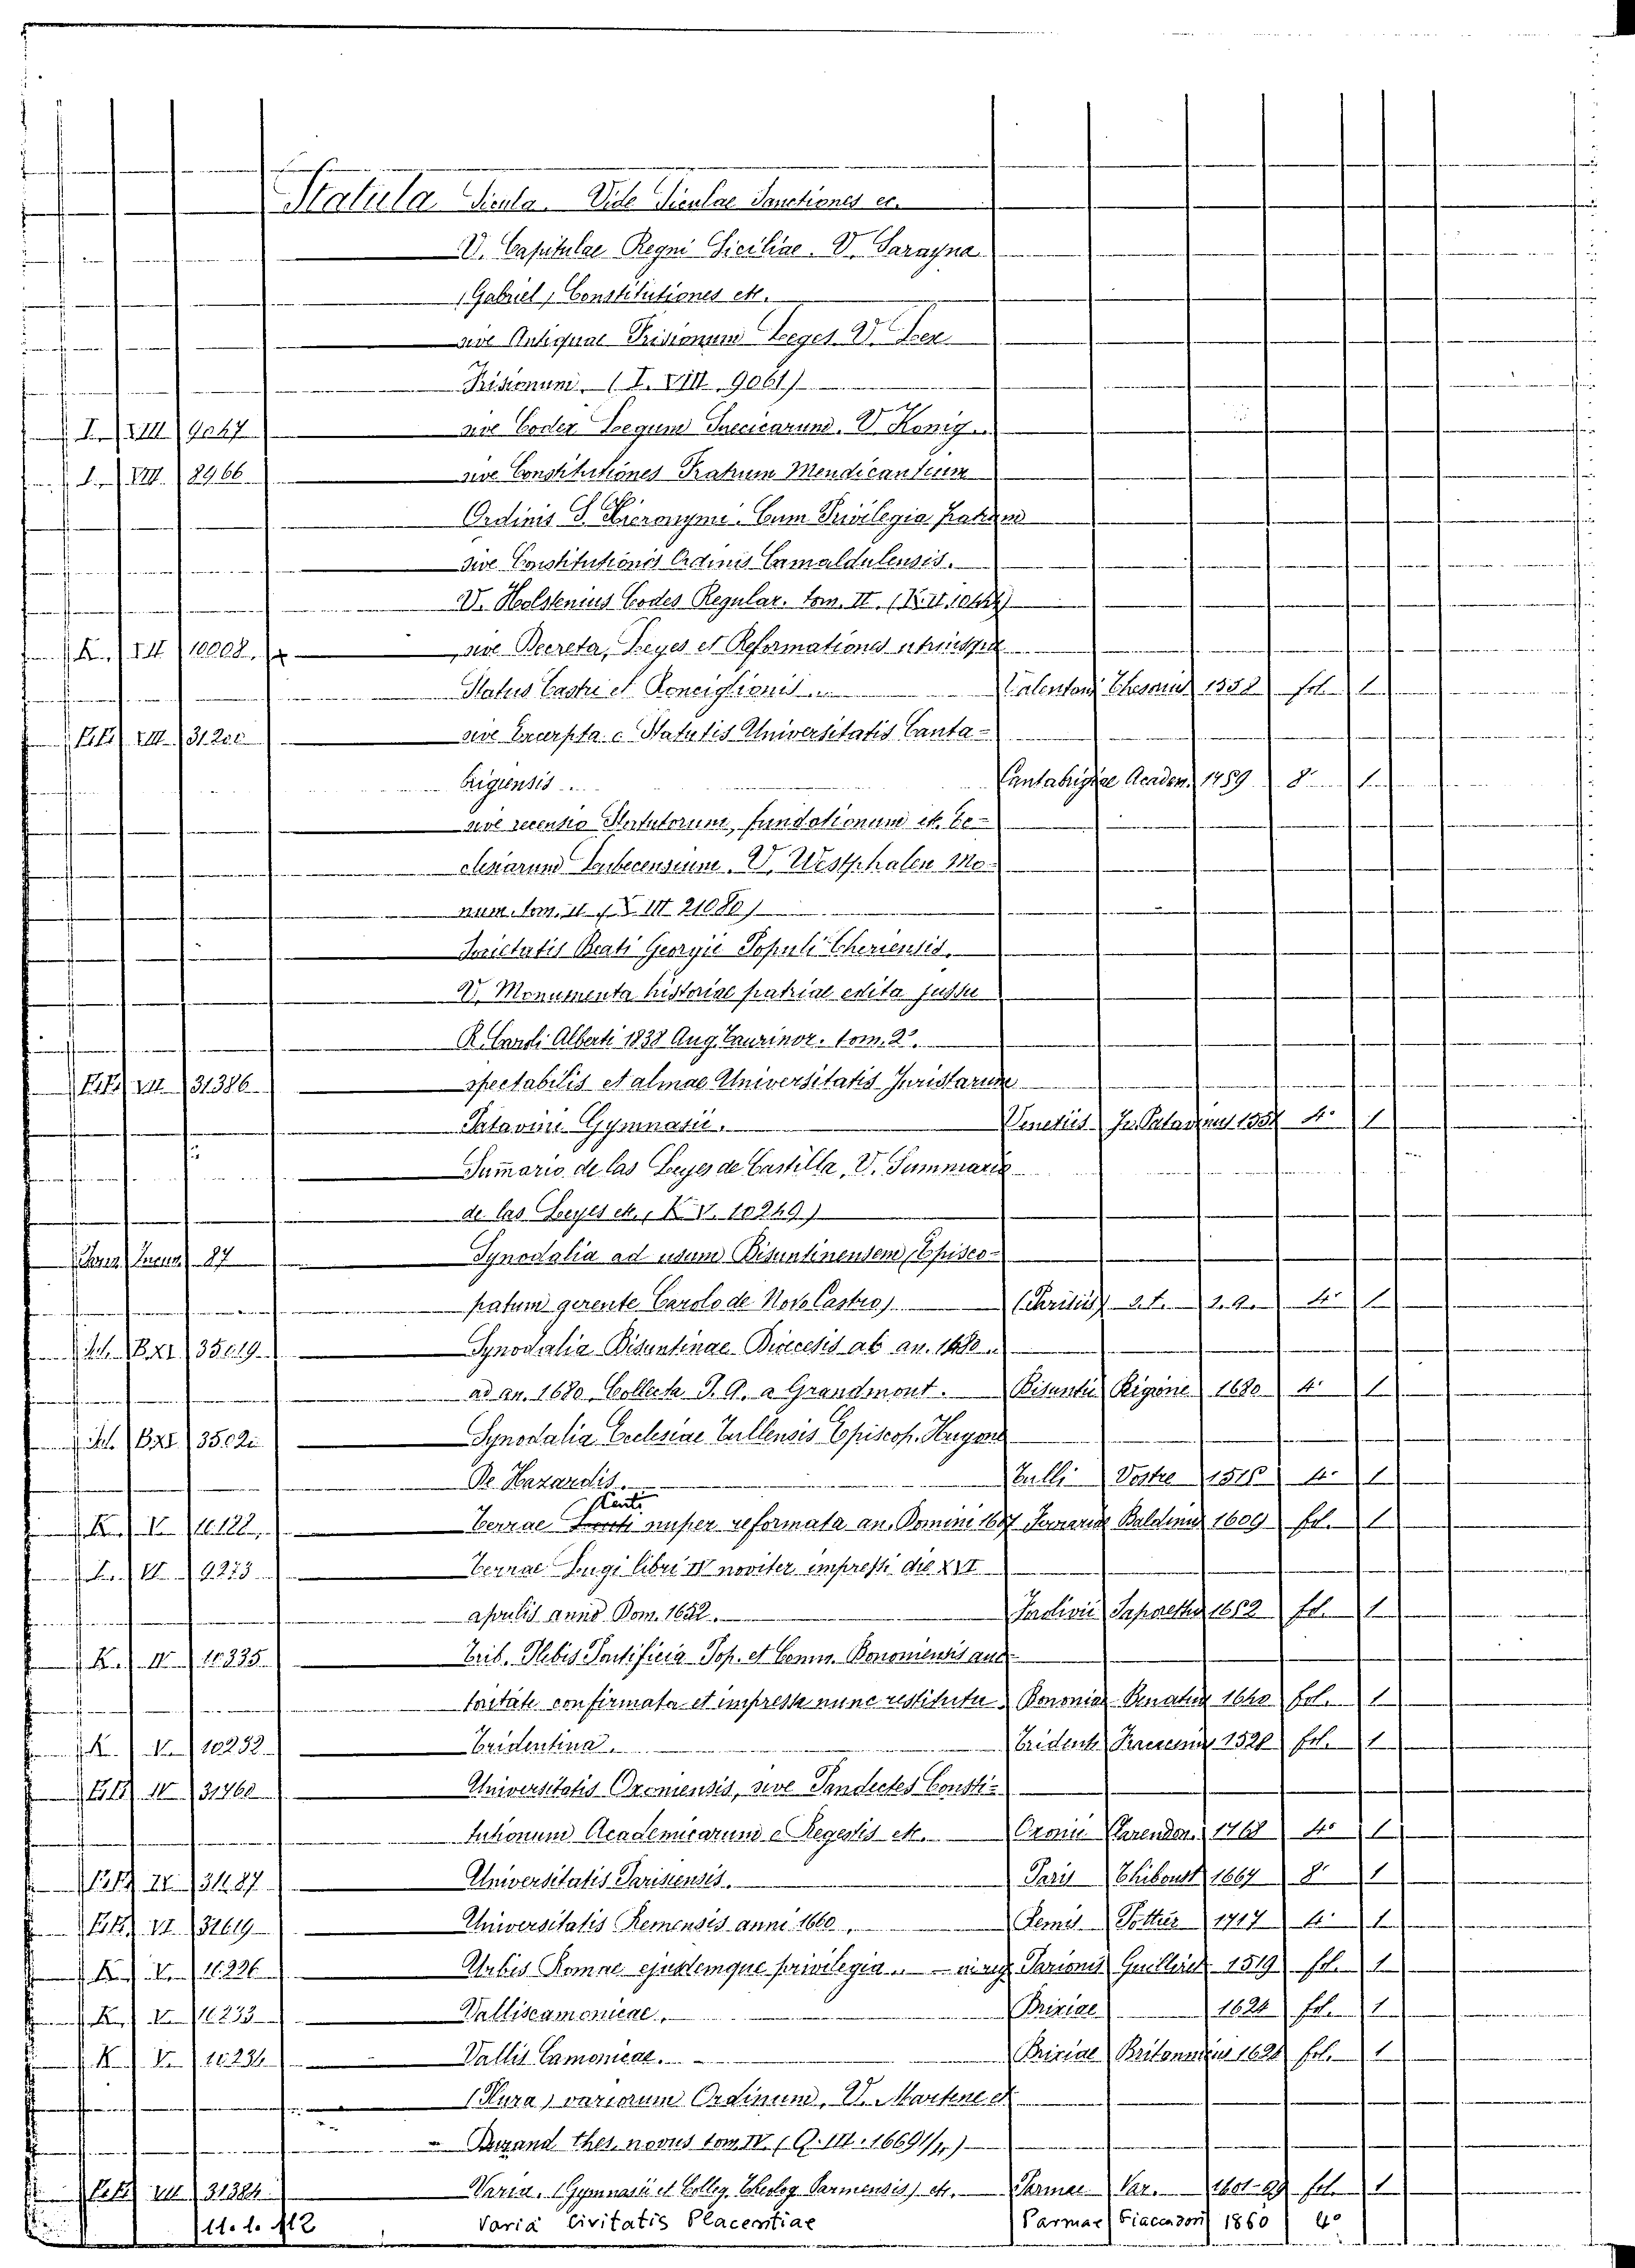 Statuta Sicula. Vide Siculae Sanctiones ec.
V. Capitulae Regni Siciliae. V. Sarayna
(Gabriel) Constitutiones etc.
sive Antiquae Frisionum Leges V. Lex
Frisionum. (I. VIII. 9061)
I. VIII 9047 sive Codex Legum Suecicarum. V. König.
I. VIII. 8966 sive Constitutiones Fratrum Mendicantium
Ordinis S. Hieronymi. Cum Privilegia fratrum
sive Constitutiones Ordinis Camaldulensis.
V. Holstenius Codes Regular. tom. II.
K. III 10008. sive Decreta, Leges et Reformationes utriusque
Status Castri et Ronciglionis. Valentani 1558 fol. 1
VIII 31200 sive Excerpta e Statutis Universitatis Canta-
brigiensis. Cantabrigiae Academ. 1789 8° 1
sive recensio Statutorum, fundationum etc. Ec-
clesiarum Lubecensium. V. Westphalen Mo-
num. tom. II (X. III 21080)
Societatis Beati Georgii Populi Cheriensis.
V. Monumenta historiae patriae edita jussu
R. Caroli Alberti 1838 Aug. Taurinor. tom. 2°.
VII 31386 spectabilis et almae Universitatis Juristarum
Patavini Gymnasii. Venetiis Jo. Patavinus 1551 4° 1
Sumario de las Leyes de Castilla, V. Summario
de las Leyes etc. (K. V. 10249)
87 Synodalia ad usum Bisuntinensem (Episco-
patum gerente Carolo de Novo Castro) (Parisiis) s. t. s. a. 4° 1
BXI 35019 Synodalia Bisuntinae Dioecesis ab an. 1480
ad an. 1680 Collecta J. A. a Grandmont. Bisuntii Rigoine 1680 4° 1
BXI 3502i Synodalia Ecclesiae Tullensis Episcop. Hugone
De Hazardis. Tulli Vostre 1515 4° 1
K. V. 10122. Terrae Centi nuper reformata an. Domini 1607 Ferrariae Baldinus 1609 fol. 1
I. VI 9273 Terrae Lugi libri IV noviter impressi die XVI
aprilis anno Dom. 1652. Forolivii Saporettus 1652 fol. 1
K. IV 10335 Trib. Plebis Pontificia Pop. et Comm. Bononiensis auc-
toritate confirmata et impressa nunc restituta Bononiae Benatius 1640 fol. 1
K. V. 10232 Tridentina. Tridenti 1528 fol. 1
IV 31460 Universitatis Oxoniensis, sive Pandectes Consti-
tutionum Academicarum e Regestis etc. Oxonii Clarendon. 1768 4° 1
IV 31487 Universitatis Parisiensis. Paris Thiboust 1667 8° 1
VI 31619 Universitatis Remensis anni 1660. Remis Pottier 1717 4° 1
K. V. 10226 Urbis Romae ejusdemque privilegia.. Parionis Guillereti 1519 fol. 1
K. V. 10233 Valliscamonicae. Brixiae 1624 fol. 1
K. V. 10234 Vallis Camonicae. Brixiae Britannicus 1624 fol. 1
(Plura) variorum Ordinum, V. Martene et
Durand thes. novus tom. IV. (Q. III. 16691/4)
VII 31384 Varia. (Gymnasii et Colleg. Theolog Parmensis) etc. Parmae Var. 1601-99 fol. 1
11. 1. 112 Varia Civitatis Placentiae Parmae Fiaccadori 1860 4°